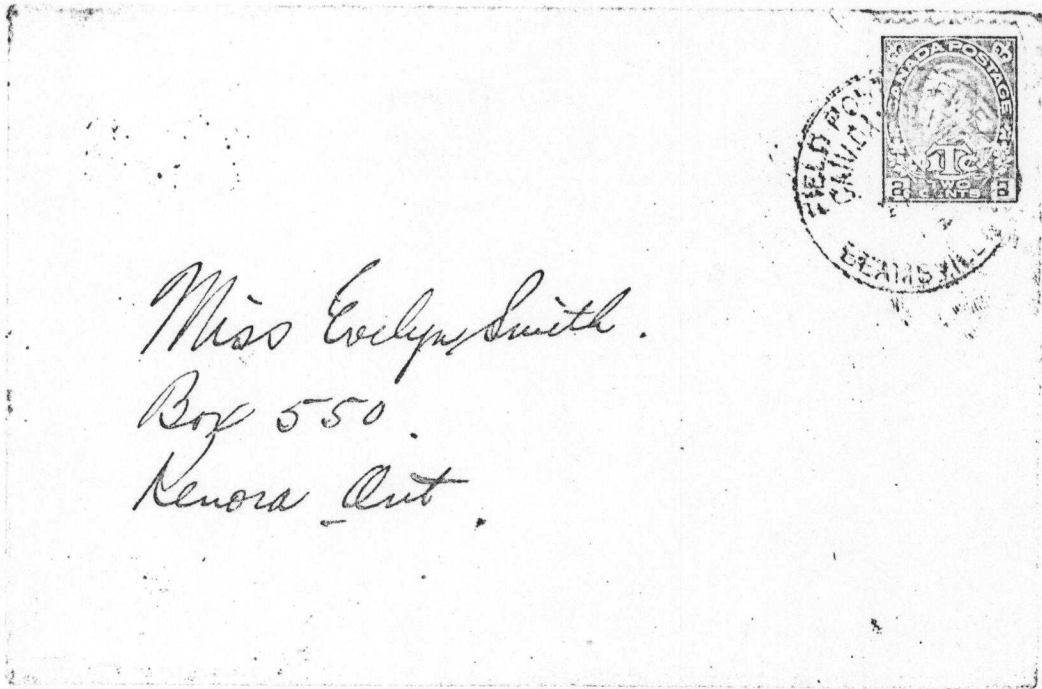 CANADA POSTAGE
1Tc
2 TWO CENTS 2
FIELD
BEAMSVILL
Miss Evelyn Smith.
Box 550.
Kenora Ont.